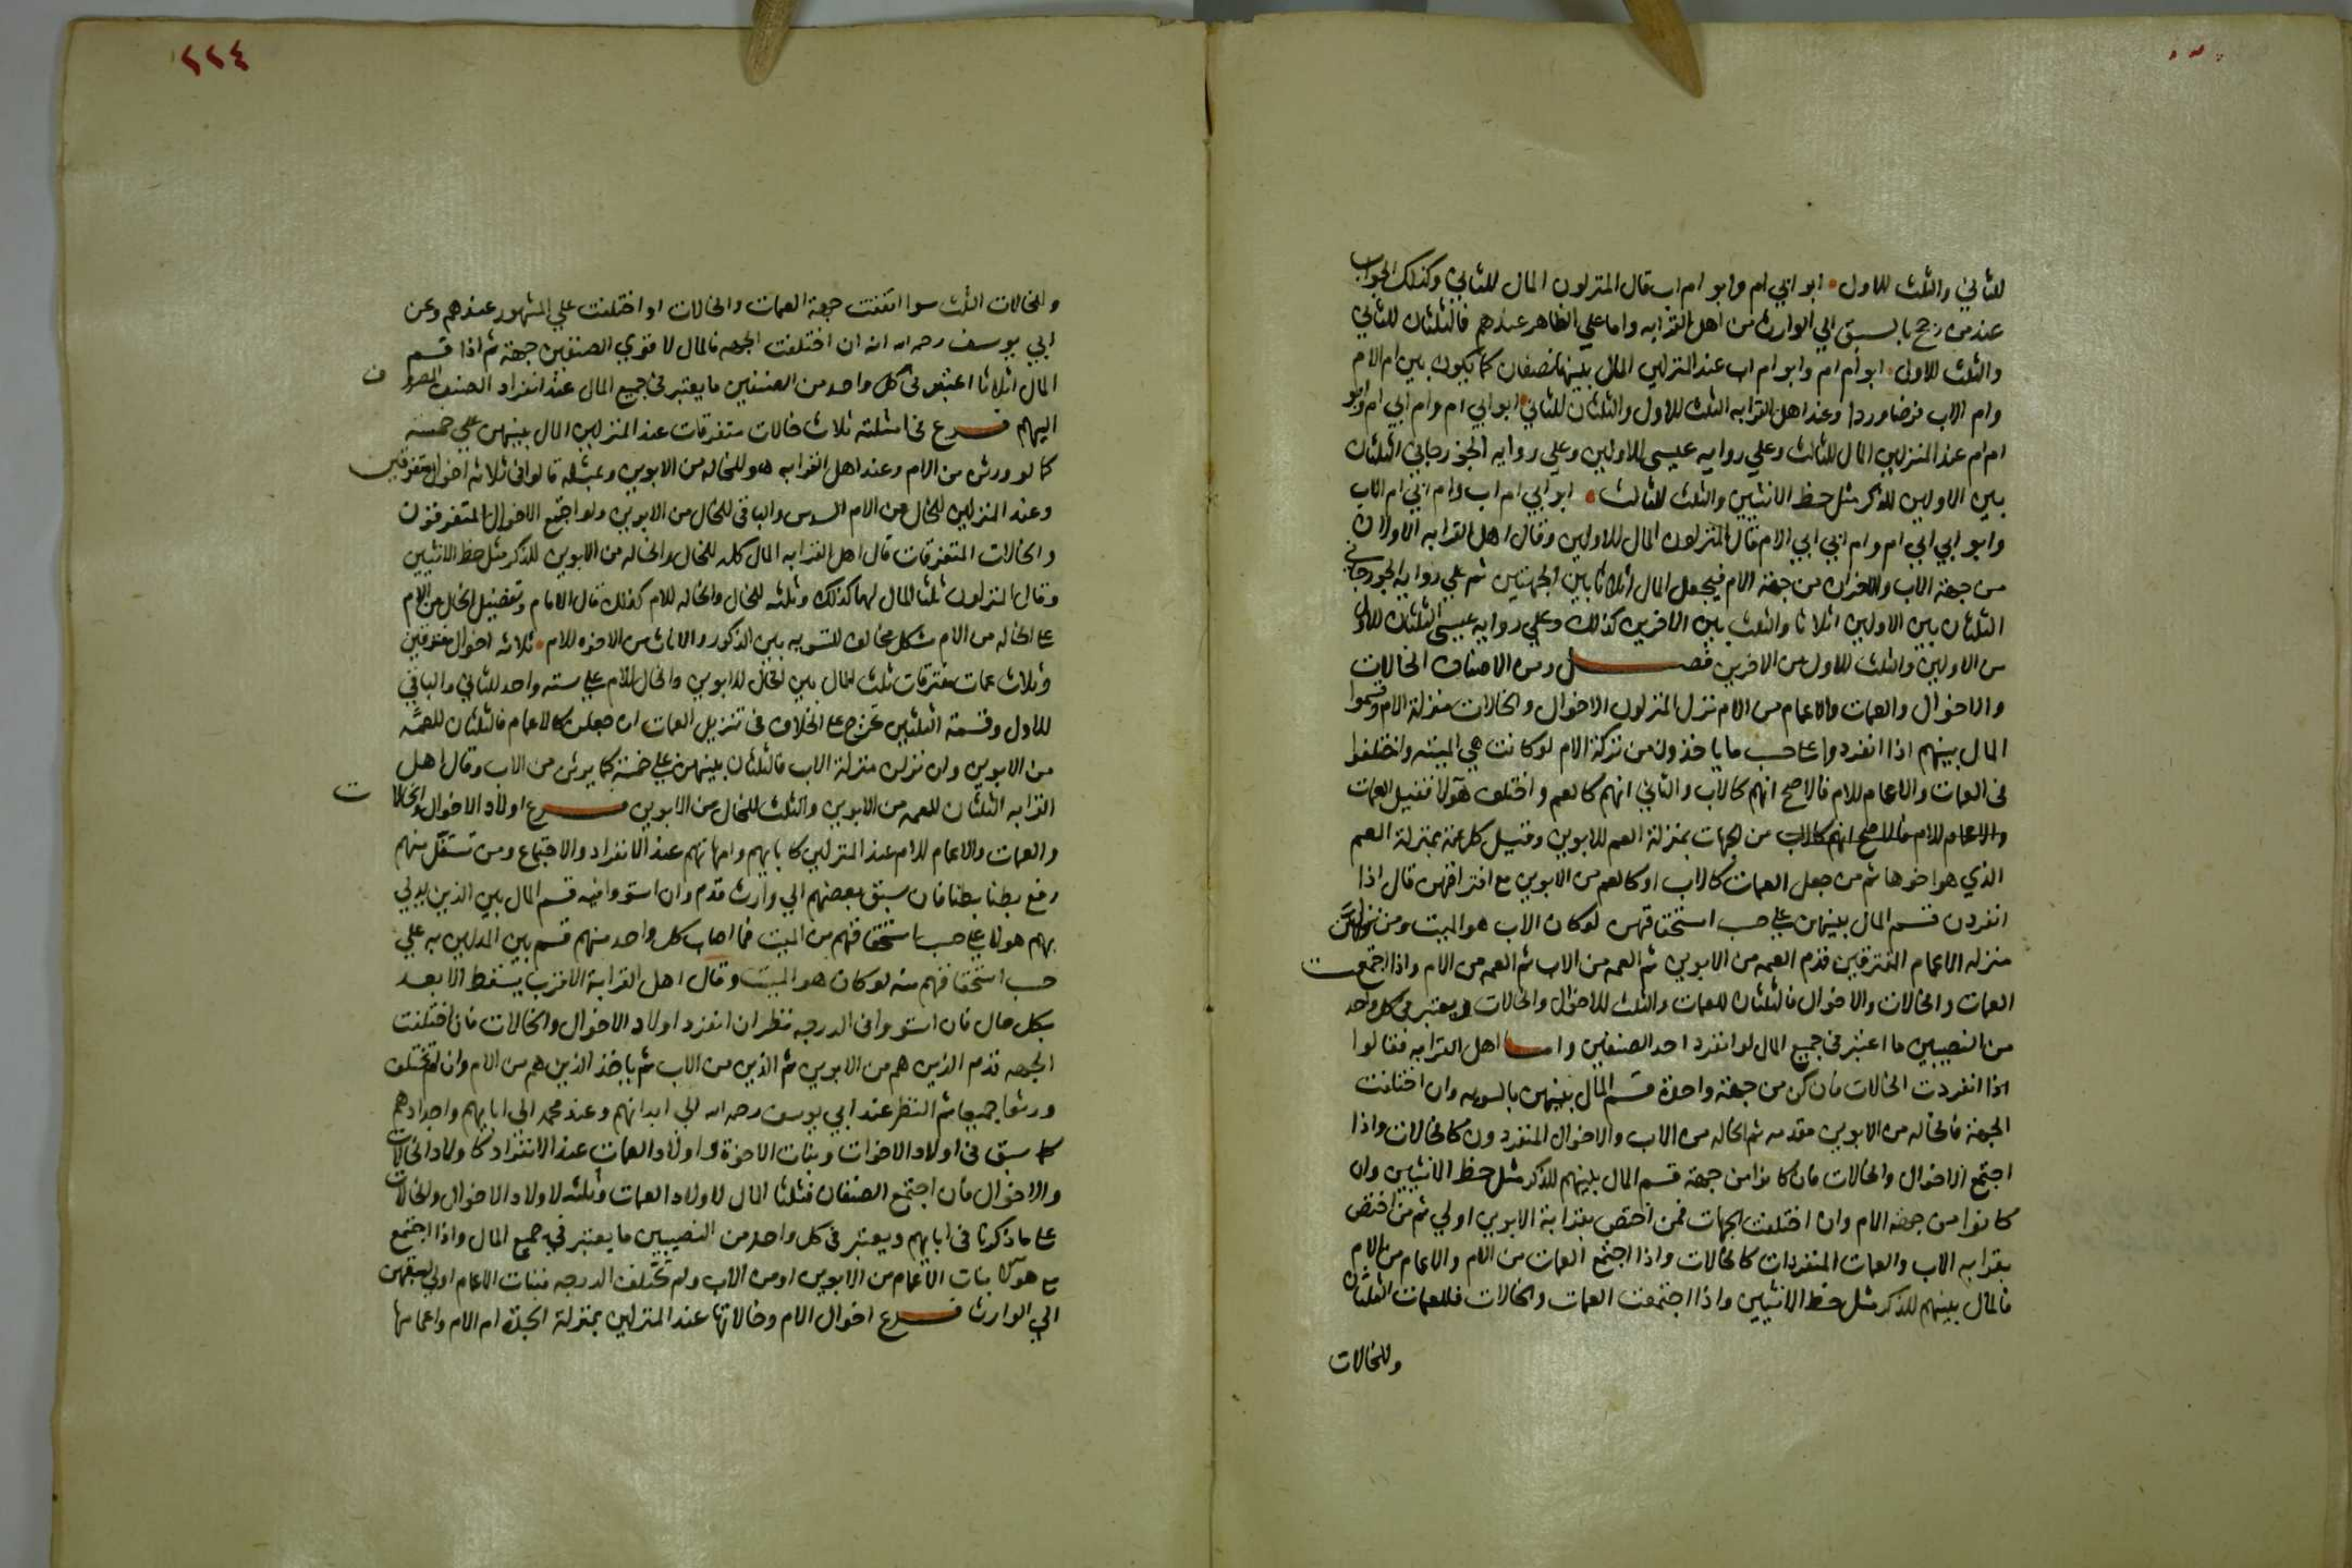 للثاني والثلث للاول ابو ابي ام وابو ام اب قال المنزلون المال للثاني وكذلك الجواب
عند من رجح بالسبق الي الوارث من اهل القرابه واما علي الظاهر عندهم فالثلثان للثاني
والثلث للاول ابو ام ام وابو ام اب عند المنزلين المال بينهما نصفان كما يكون بين ام الام
وام الاب فرضا وردا وعند اهل القرابه الثلث للاول والثلثان للثاني ابو ابي ام وام ابي ام وابو
ام ام عند المنزلين المال للثالث وعلي روايه عيسي للاولين وعلي روايه الجوزجاني الثلثان
بين الاولين للذكر مثل حظ الانثيين والثلث للثالث ابو ابي ام اب وام ابي ام الاب
وابو ابي ابي ام وام ابي ابي الام فقال المنزلون المال للاولين وقال اهل القرابه الاولان
من جهة الاب والاخران من جهة الام فيجعل المال اثلاثا بين الجهتين ثم علي روايه الجوزجاني
الثلثان بين الاولين اثلاثا والثلث بين الاخرين كذلك وعلي روايه عيسي الثلثان للاول
من الاولين والثلث للاول من الاخرين فصل ومن الاصناف الخالات
والاخوال والعمات والاعمام من الام نزل المنزلون الاخوال والخالات منزلة الام وقسموا
المال بينهم اذا انفردوا علي حسب ما ياخذون من تركة الام لو كانت هي الميته واختلفوا
في العمات والاعمام للام فالاصح انهم كالاب والثاني انهم كالعم واختلف هولا فقيل العمات
والاعمام للام فالاصح انهم كالاب من الجهات بمنزلة العم للابوين وقيل كل عمة بمنزلة العم
الذي هو اخوها ثم من جعل العمات كالاب او كالعم من الابوين مع افتراقهن قال اذا
انفردن قسم المال بينهن علي حسب استحقاقهن لو كان الاب هو الميت ومن نزلهن
منزله الاعمام المفترقين قدم العمه من الابوين ثم العمه من الاب ثم العمه من الام واذا اجتمعت
العمات والخالات والاخوال فالثلثان للعمات والثلث للاخوال والخالات ويعتبر في كل واحد
من النصيبين ما اعتبر في جميع المال لو انفرد احد الصنفين واما اهل القرابه فقالوا
اذا انفردت الخالات فان كن من جهة واحدة قسم المال بينهن بالسويه وان اختلفت
الجهة فالخاله من الابوين مقدمه ثم الخاله من الاب والاخوال المنفردون كالخالات واذا
اجتمع الاخوال والخالات فان كانوا من جهة قسم المال بينهم للذكر مثل حظ الانثيين وان
كانوا من جهة الام وان اختلفت الجهات فمن اختص بقرابة الابوين اولي ثم من اختص
بقرابه الاب والعمات المنفردات كالخالات واذا اجتمع العمات من الام والاعمام من الام
فالمال بينهم للذكر مثل حظ الانثيين واذا اجتمعت العمات والخالات فللعمات الثلثان
وللخالات
٢٢٤
والخالات الثلث سوا اتفقت جهة العمات والخالات او اختلفت علي المشهور عندهم وعن
ابي يوسف رحمه الله انه ان اختلفت الجهه فالمال لاقوي الصنفين جهة ثم اذا قسم
المال اثلاثا اعتبر في كل واحد من الصنفين ما يعتبر في جميع المال عند انفراد الصنف المصروف
اليهم فرع في امثلته ثلاث خالات متفرقات عند المنزلين المال بينهن علي خمسة
كما لو ورثن من الام وعند اهل القرابه هو للخاله من الابوين وبمثله قالوا في ثلاثه اخوال متفرقين
وعند المنزلين للخال من الام السدس والباقي للخال من الابوين ولو اجتمع الاخوال المتفرقون
والخالات المتفرقات قال اهل القرابه المال كله للخال والخاله من الابوين للذكر مثل حظ الانثيين
وقال المنزلون ثلثا المال لهما كذلك وثلثه للخال والخاله للام كذلك قال الامام وتفضيل الخال من الام
علي الخاله من الام مشكل مخالف للتسويه بين الذكور والاناث من الاخوه للام ثلاثه اخوال مفترقين
وثلاث عمات مفترقات ثلث المال بين الخال للابوين والخال للام علي سته واحد للثاني والباقي
للاول وقسمة الثلثين تخرج علي الخلاف في تنزيل العمات ان جعلن كالاعمام فالثلثان للعمه
من الابوين وان نزلن منزلة الاب فالثلثان بينهن علي خمسة كما يرثن من الاب وقال اهل
القرابه الثلثان للعمه من الابوين والثلث للخال من الابوين فرع اولاد الاخوال والخالات
والعمات والاعمام للام عند المنزلين كابايهم وامهاتهم عند الانفراد والاجتماع ومن تسفل منهم
رفع بطنا بطنا فان سبق بعضهم الي وارث قدم وان استووا فيه قسم المال بين الذين يدلي
بهم هولا علي حسب استحقاقهم من الميت فما اصاب كل واحد منهم قسم بين المدلين به علي
حسب استحقاقهم منه لو كان هو الميت وقال اهل القرابة الاقرب يسقط الابعد
بكل حال فان استووا في الدرجه نظر ان انفرد اولاد الاخوال والخالات فان اختلفت
الجهه قدم الذين هم من الابوين ثم الذين من الاب ثم ياخذ الذين هم من الام وان لم تختلف
ورثوا جميعا ثم النظر عند ابي يوسف رحمه الله الي ابدانهم وعند محمد الي ابايهم واجدادهم
كما سبق في اولاد الاخوات وبنات الاخوة واولاد العمات عند الانفراد كاولاد الخالات
والاخوال فان اجتمع الصنفان فثلثا المال لاولاد العمات وثلثه لاولاد الاخوال والخالات
علي ما ذكرنا في ابايهم ويعتبر في كل واحد من النصيبين ما يعتبر في جميع المال واذا اجتمع
مع هولا بنات الاعمام من الابوين او من الاب ولم تختلف الدرجه فبنات الاعمام اولي لسبقهن
الي الوارث فرع اخوال الام وخالاتها عند المنزلين بمنزلة الجدة ام الام واعمامها